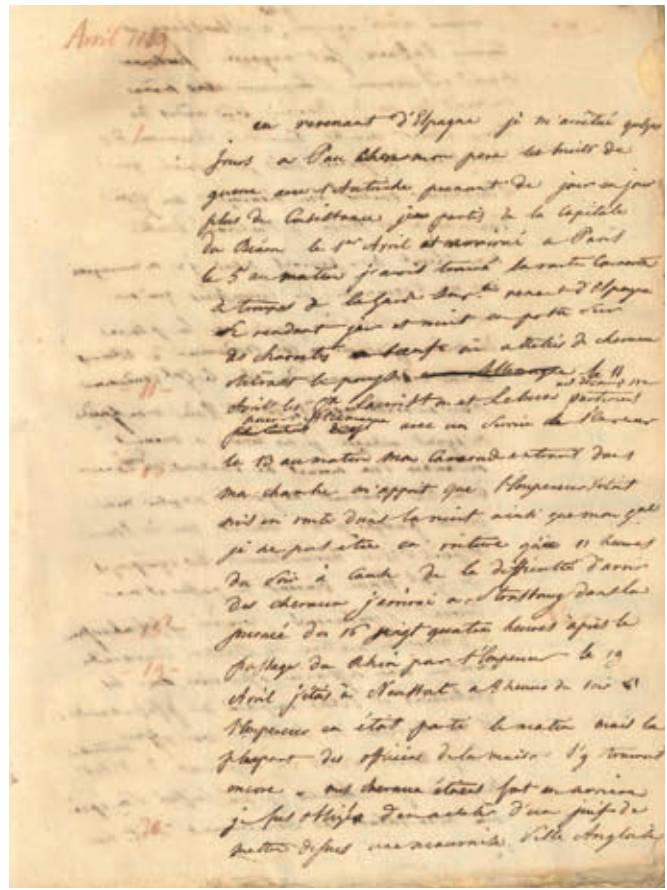 Avril 1809
en revenant d'Espagne je m'arrêtai quelques
jours a Pau chez mon pere les bruits de
guerre avec l'Autriche prenant de jour en jour
plus de Consistance je partis de la Capitale
du Béarn le 1er Avril et arrivai a Paris
le 5 au matin j'avois trouvé la route Couverte
de troupes de la Garde Imple venant d'Espagne
se rendant jour et nuit en poste sur
des charrettes a boeufs ou attelées de chevaux
le 11
Avril les Lauriston et Lebrun partirent
pour avec un Service de l'Empereur
le 13 au matin mon Camarade entrant dans
ma chambre m'apprit que l'Empereur s'étoit
mis en route dans la nuit ainsi que mon gal
je ne pus être en voiture qu'a 11 heures
du Soir à Cause de la difficulté d'avoir
des chevaux j'arrivai a Strasbourg dans la
journée du 16 vingt quatre heures après le
passage du Rhin par l'Empereur le 19
Avril j'étais à Neustat a heures du soir
l'Empereur en était parti le matin mais la
plupart des officiers de la maison s'y trouvent
encore mes chevaux étaient fort en arriere
je fus obligé d'en acheter d'un juif de
mettre dessus une mauvaise Selle Anglaise